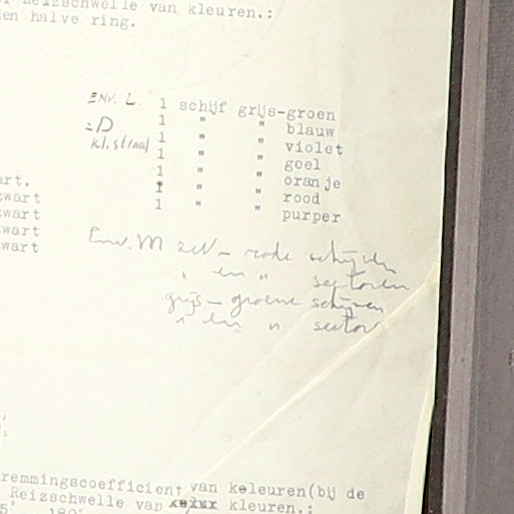 Reizschwelle van kleuren.:
en halve ring.
Env. L. 1 schijf grijs-groen
=D 1 " " blauw
kl. straal 1 " " violet
1 " " geel
art. 1 " " oranje
wart 1 " " rood
wart 1 " " purper
wart
wart
Env. M zw - rode schijven
" en " sectoren
grijs - groene schijven
" en " sector
remmingscoefficient van keleuren(bij de
Reizschwelle van kleuren.:
5' 180°